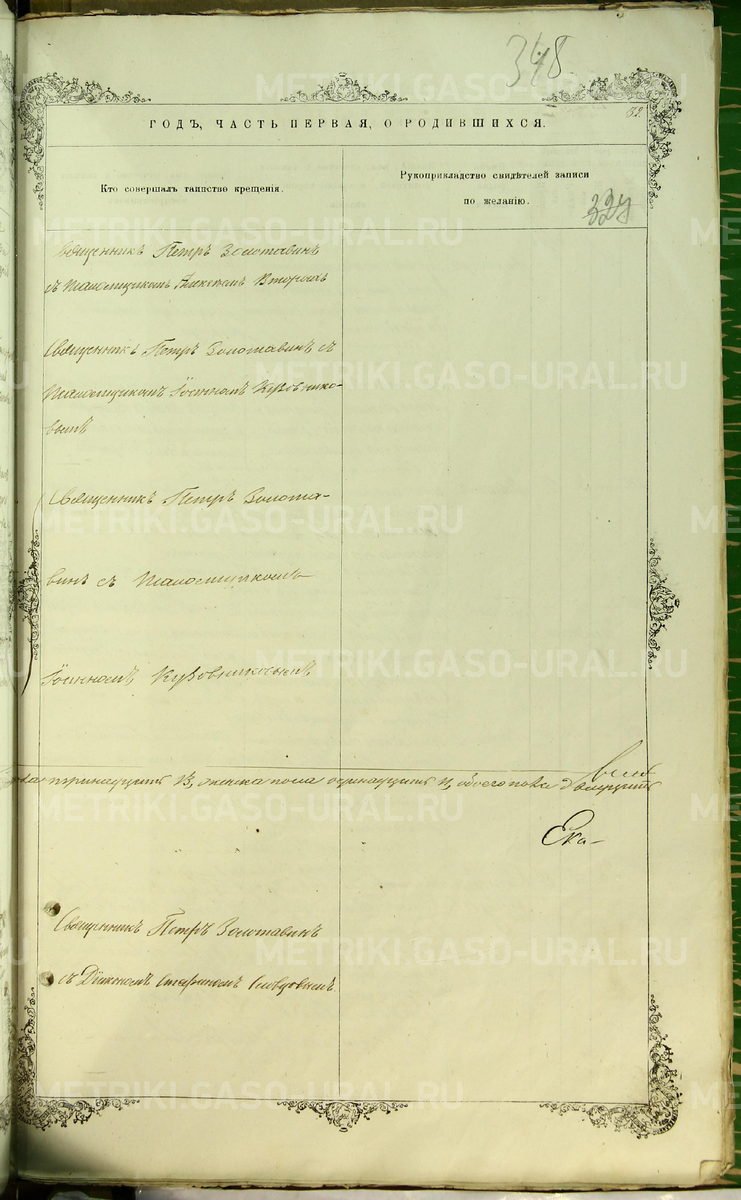 348
52
ГОДЪ, ЧАСТЬ ПЕРВАЯ, О РОДИВШИХСЯ.
Кто совершалъ таинство крещенія.
Рукоприкладство свидѣтелей записи
по желанію.
Священникъ Петръ Золотавинъ
съ Псаломщикомъ Алексѣемъ
Священникъ Петръ Золотавинъ съ
Псаломщикомъ Іоанномъ Кузовнико-
вымъ
Священникъ Петръ Золота-
винъ съ Псаломщикомъ
Іоанномъ Кузовниковымъ
тринадцать 13, женска пола одинадцать 11, обоего пола двадцать
Ека-
Священникъ Петръ Золотавинъ
съ Діакономъ Стефаномъ Словцовымъ
METRIKI.GASO-URAL.RU